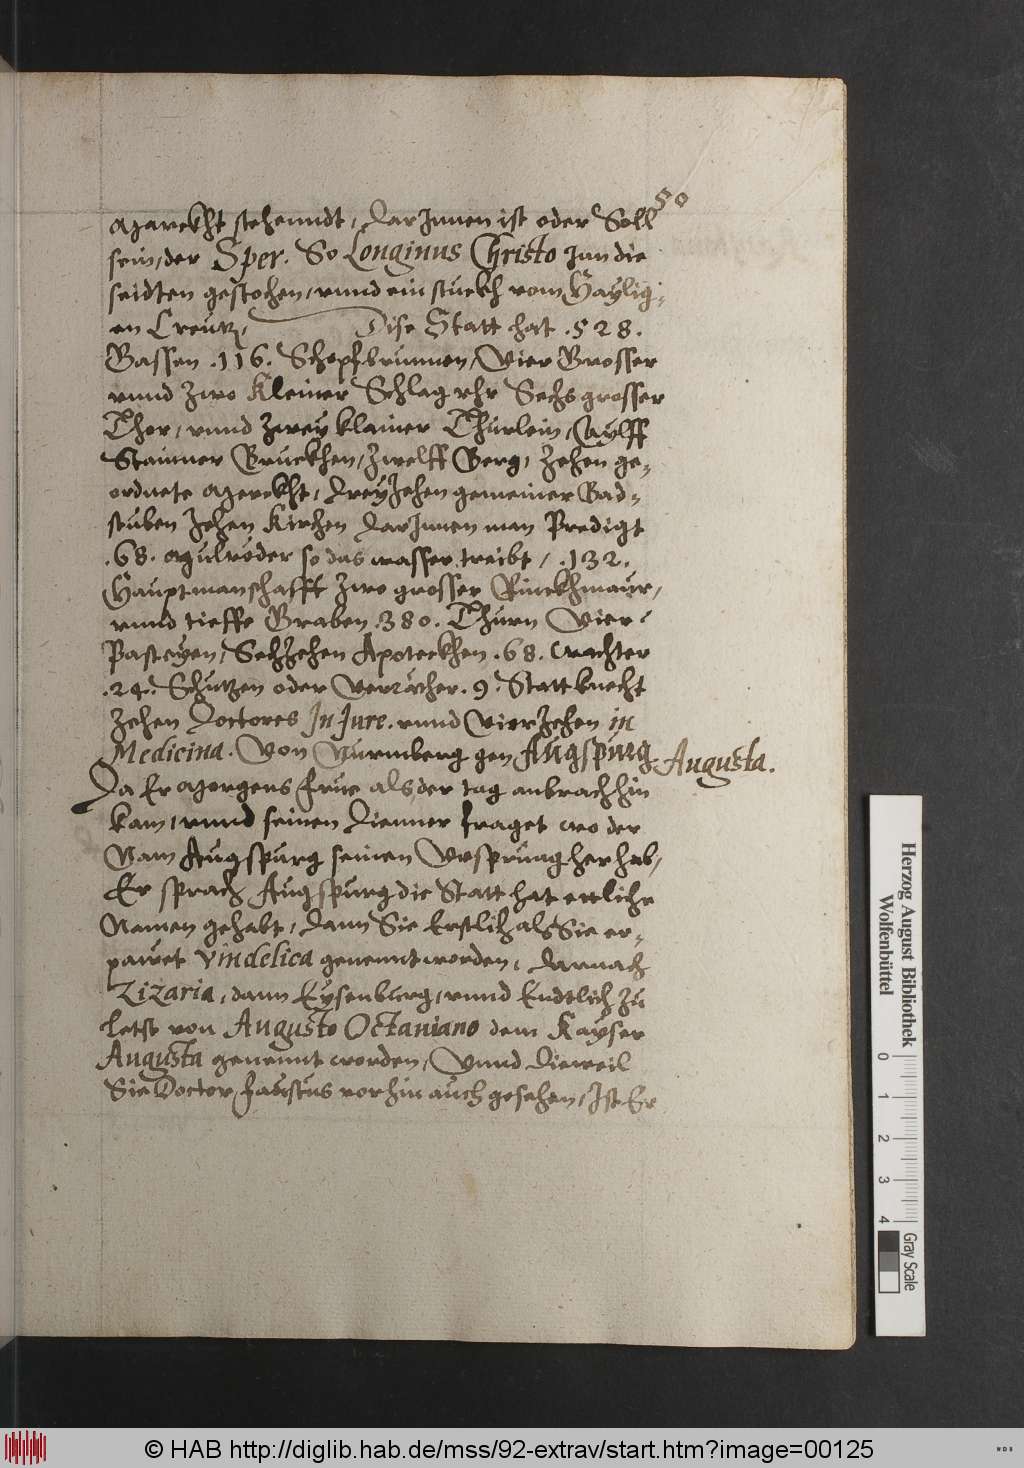 50
Marckht stehenndt, darJnnen ist oder Soll
sein, der Sper. So Longinus Christo Jnn die
seidten gestochen, vnnd ein stuckh vom Haylig-
en Creutz, Dise Statt hat .528.
Gassen .116. Schopfbrunnen, Vier Grosser
vnnd zwo Kleiner Schlag vhr Sechs grosser
Thor, vnnd zwey klainer Thurlein, Aylff
Stainner Bruckhen, Zwelff Berg, zehen ge-
ordnete Merckht, dreyzehen gemeiner Bad-
stuben zehen Kirchen darJnnen man Predigt
.68. Mulreder so das wasser treibt, .132.
Hauptmanschafft zwo grosser Rinckhmaur,
vnnd tieffe Graben .380. Thurn Vier
Pasteyen, Sechzehen Apoteckhen .68. Wachter
.24. Schutzen oder Verräther .9. Stattknecht
Zehen Doctores Jn Jure. vnnd Vierzehen in
Medicina. Von Nurmberg gen Augspurg Augusta.
Da Er Morgens frue als der tag anbrach hin
kam, vnnd seinen Dienner fraget wo der
Nam Augspurg seinen Vrsprung her hab,
Er sprach Augspurg die Statt hat ettliche
Namen gehabt, dann Sie Erstlich als Sie er-
pawet Vindelica genennt worden, darnach
Zizaria, dann Eysenburg, vnnd Endtlich zu
letst von Augusto Octauiano dem Kayser
Augusta genennt worden, Vnnd dieweil
Sie Doctor Faustus vorhin auch gesehen, Jst Er
Herzog August Bibliothek
Wolfenbüttel
0 1 2 3 4
Gray Scale
© HAB http://diglib.hab.de/mss/92-extrav/start.htm?image=00125
WDB